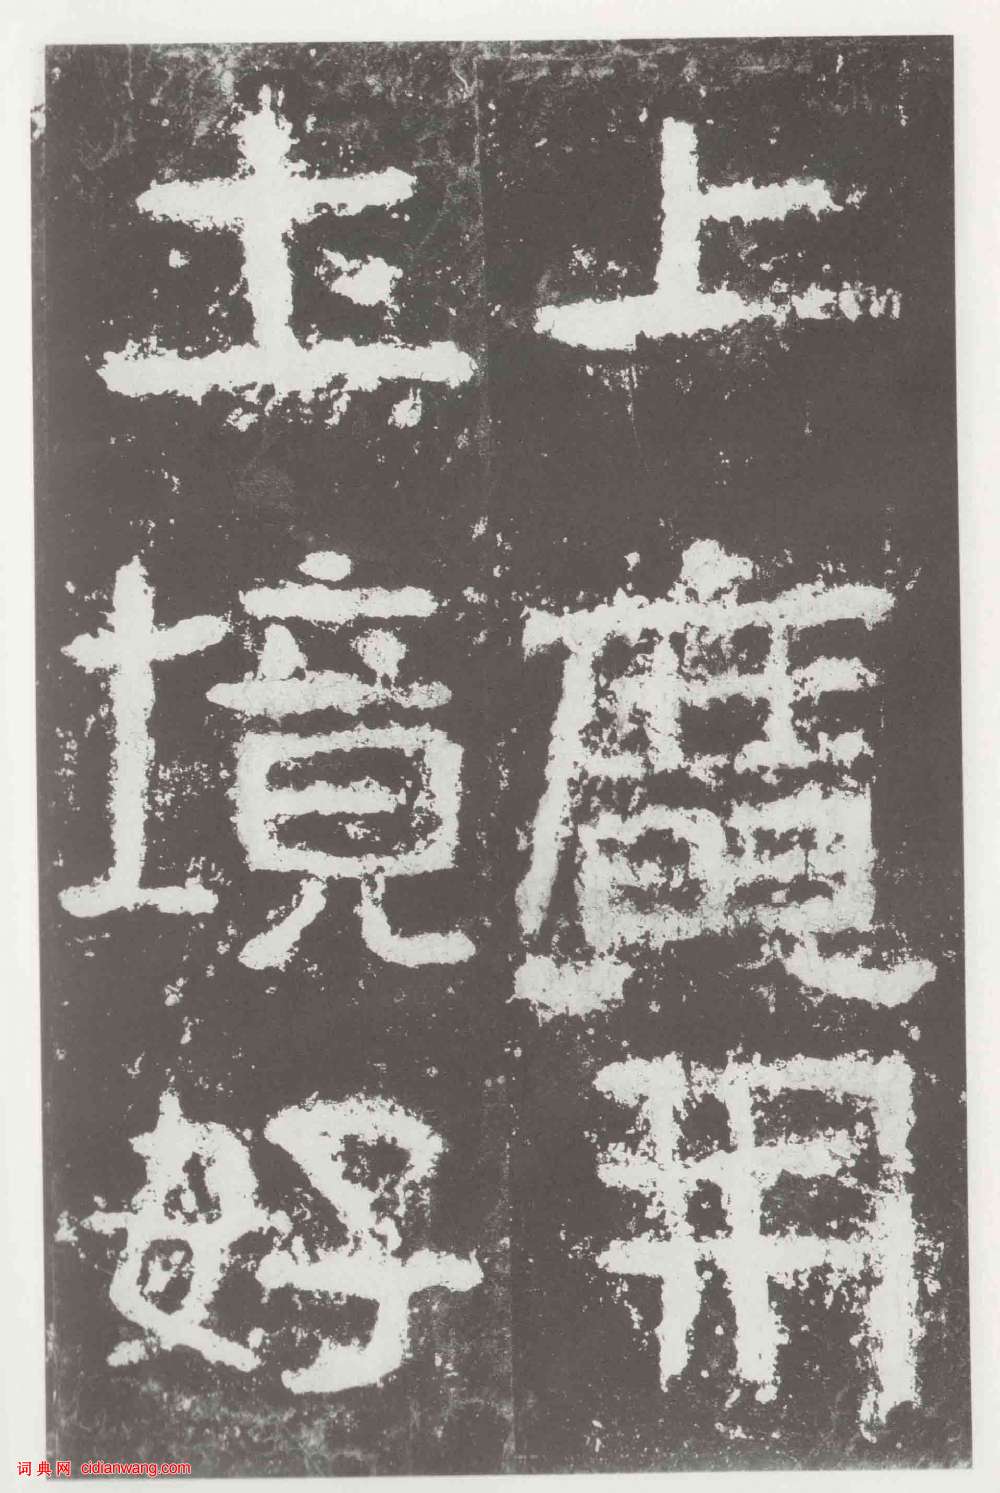 上廣開
土境好
词典网 cidianwang.com